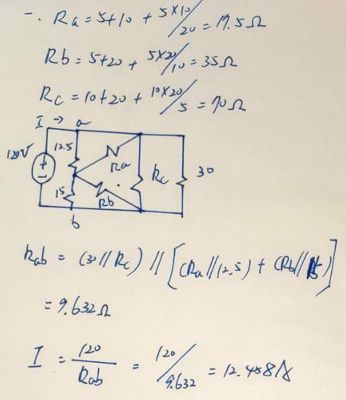 一. Ra = 5+10 + 5×10/20 = 17.5Ω
Rb = 5+20 + 5×20/10 = 35Ω
Rc = 10+20 + 10×20/5 = 70Ω
I → a
120V
+
-
12.5
Ra
Rc
30
15
Rb
b
Rab = (30//Rc) // [(Ra//12.5) + (Rb//15)]
= 9.632Ω
I = 120/Rab = 120/9.632 = 12.458A